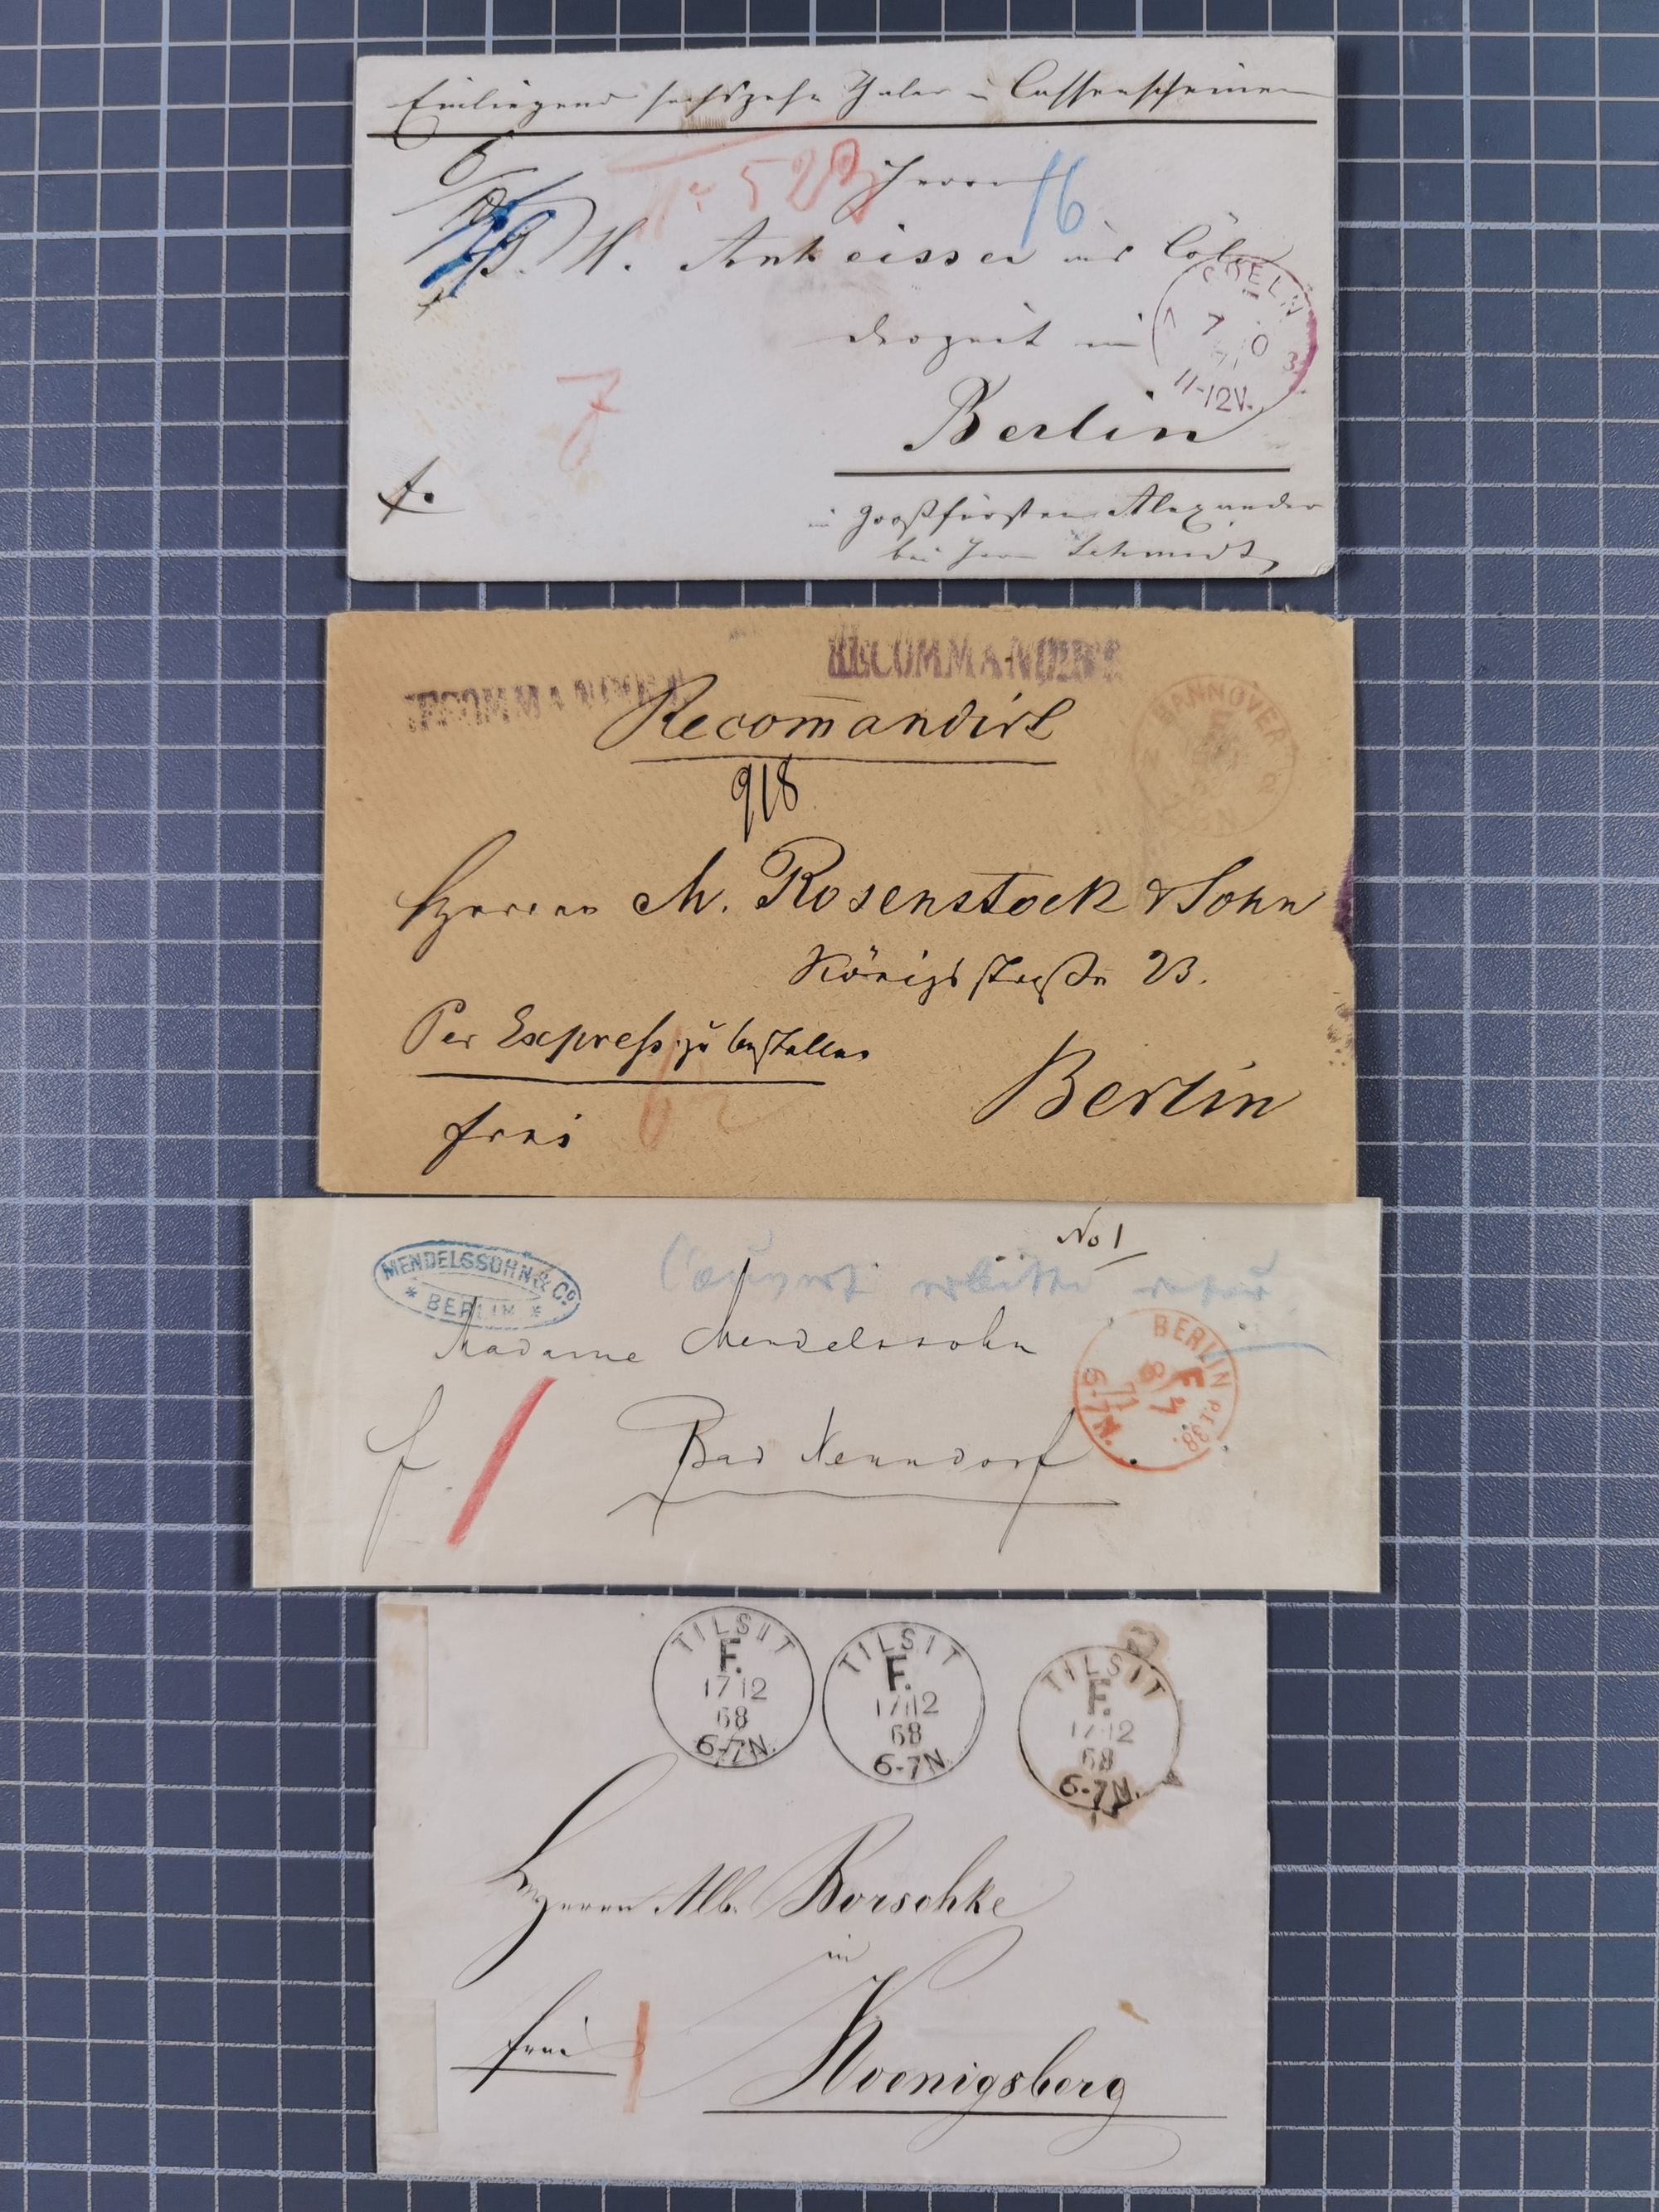 Einliegend sechszehn Thaler in Cassenscheinen
No 523
16
Herrn
H. Ankeisser aus Cöln
derzeit in
COELN
7 10
11-12V.
Berlin
7
f.
im Großfürsten Alexander
bei Herrn Schmidt
RECOMMANDIRT
RECOMMANDIRT
Recomandirt
918
HANNOVER
Herren M. Rosenstock & Sohn
Königsstraße 23.
Per Express zu bestellen
Berlin
frei
No 1
Couvert erbitte retour
MENDELSSOHN & Co
* BERLIN *
Madame Mendelssohn
BERLIN P.E.38.
F
8/7
71
6-7N.
f.
Bad Nenndorf
TILSIT
F.
17 12
68
6-7N.
TILSIT
F.
17 12
68
6-7N.
TILSIT
F.
17 12
68
6-7N.
Herrn Alb. Borschke
in
frei
Koenigsberg